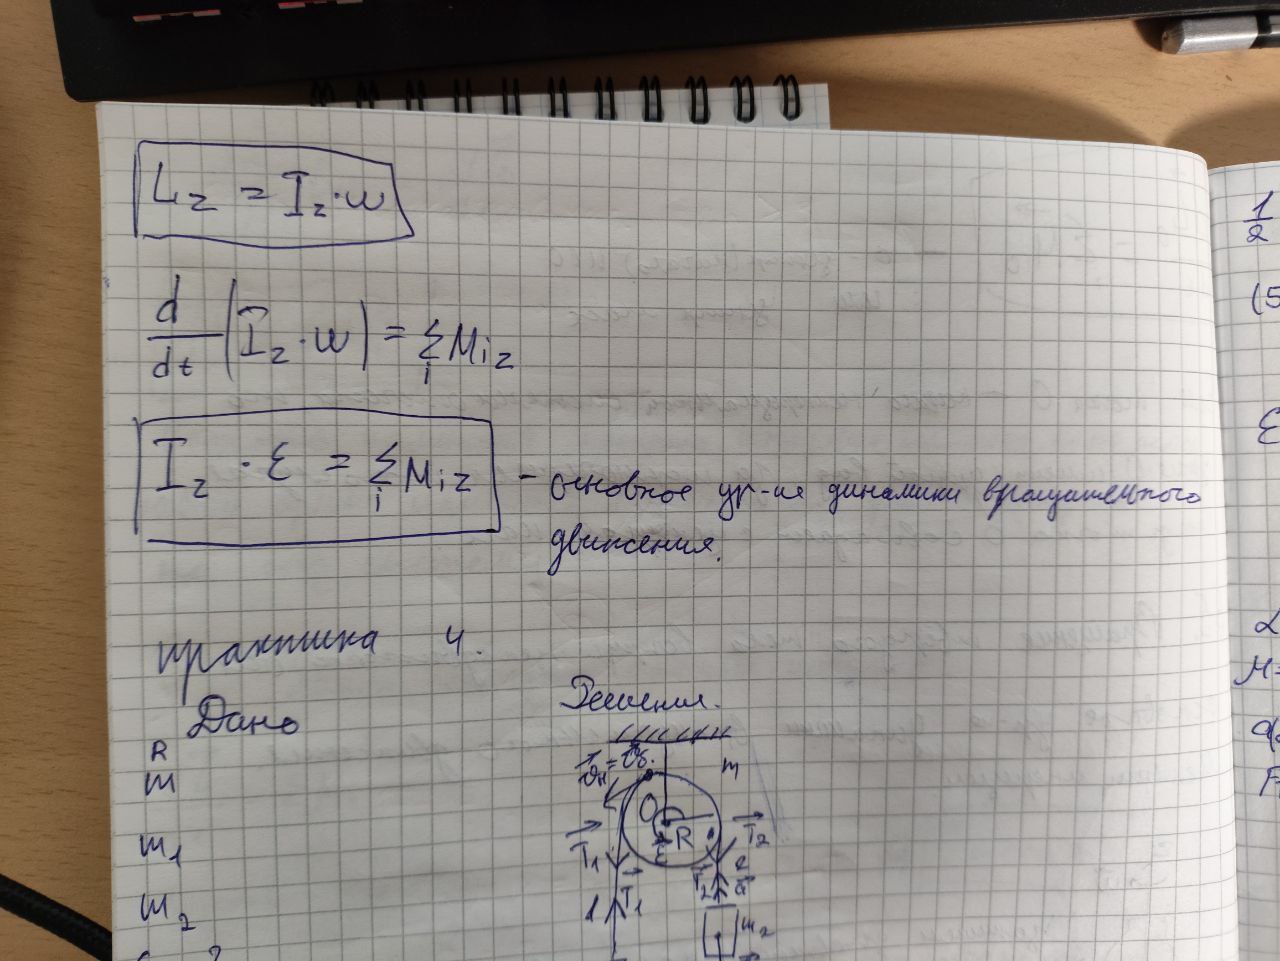 L_z = I_z · ω
d/dt (I_z · ω) = Σ_i M_iz
I_z · ε = Σ_i M_iz - основное ур-ие динамики вращательного
движения.
практика 4.
Дано
Решения.
R
m
m
m_1
O
R
T_1
T_2
T_1
T_2
1
2
m_2
m_2
1
2
(5
ε